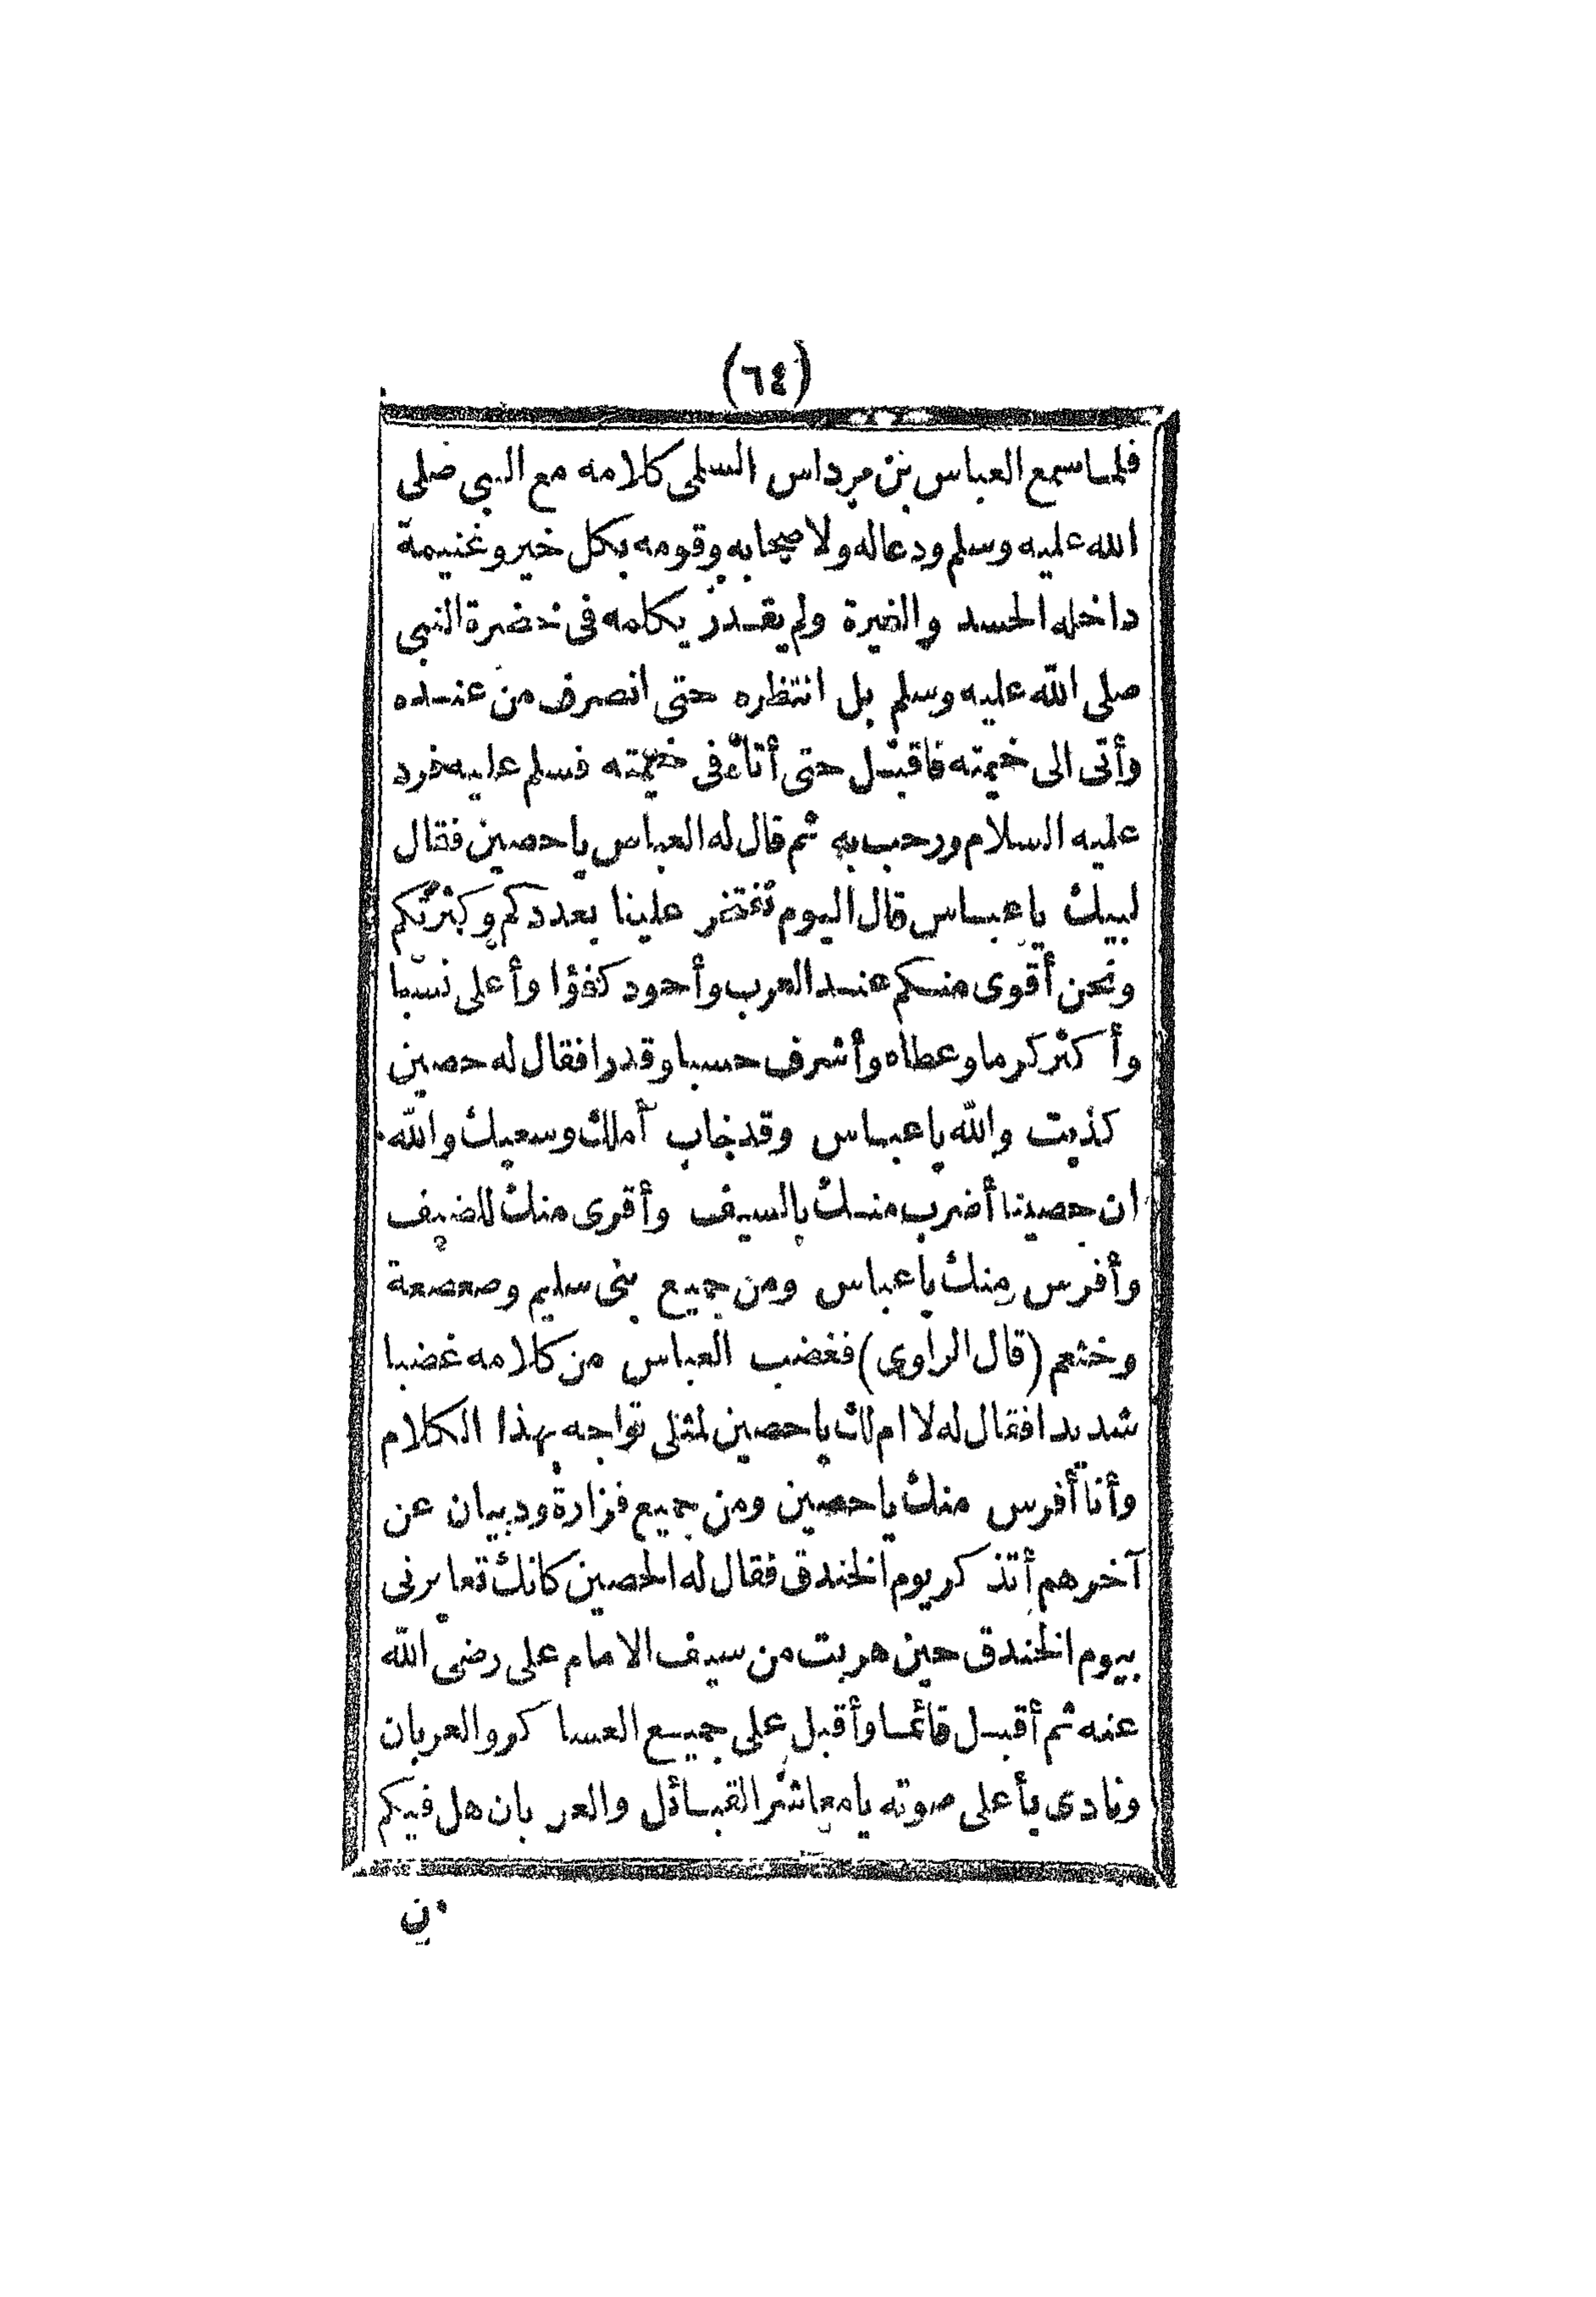 (٦٤)
فلما سمع العباس بن مرداس السلمى كلامه مع النبي صلى
الله عليه وسلم ودعاله ولاصحابه وقومه بكل خير وغنيمة
داخله الحسد والغيرة ولم يقدر يكلمه فى حضرة النبي
صلى الله عليه وسلم بل انتظره حتى انصرف من عنده
وأتى الى خيمته فاقبل حتى أتاه فى خيمته فسلم عليه فرد
عليه السلام ورحب به ثم قال له العباس يا حصين فقال
لبيك يا عباس قال اليوم تفتخر علينا بعددكم وكثرتكم
ونحن أقوى منكم عند العرب وأجود كفؤا وأعلى نسبا
وأكثر كرما وعطاه وأشرف حسبا وقدرا فقال له حصين
كذبت والله يا عباس وقد خاب أملك وسعيك والله
ان حصينا أضرب منك بالسيف وأقرى منك للضيف
وأفرس منك يا عباس ومن جميع بنى سليم وصعصعة
وخثعم (قال الراوى) فغضب العباس من كلامه غضبا
شديدا فقال له لا ام لك يا حصين لمثلى تواجه بهذا الكلام
وأنا أفرس منك يا حصين ومن جميع فزارة ودبيان عن
آخرهم أتذكر يوم الخندق فقال له الحصين كانك تعايرنى
بيوم الخندق حين هربت من سيف الامام على رضى الله
عنه ثم أقبل قائما وأقبل على جميع العساكر والعربان
ونادى بأعلى صوته يا معاشر القبائل والعربان هل فيكم